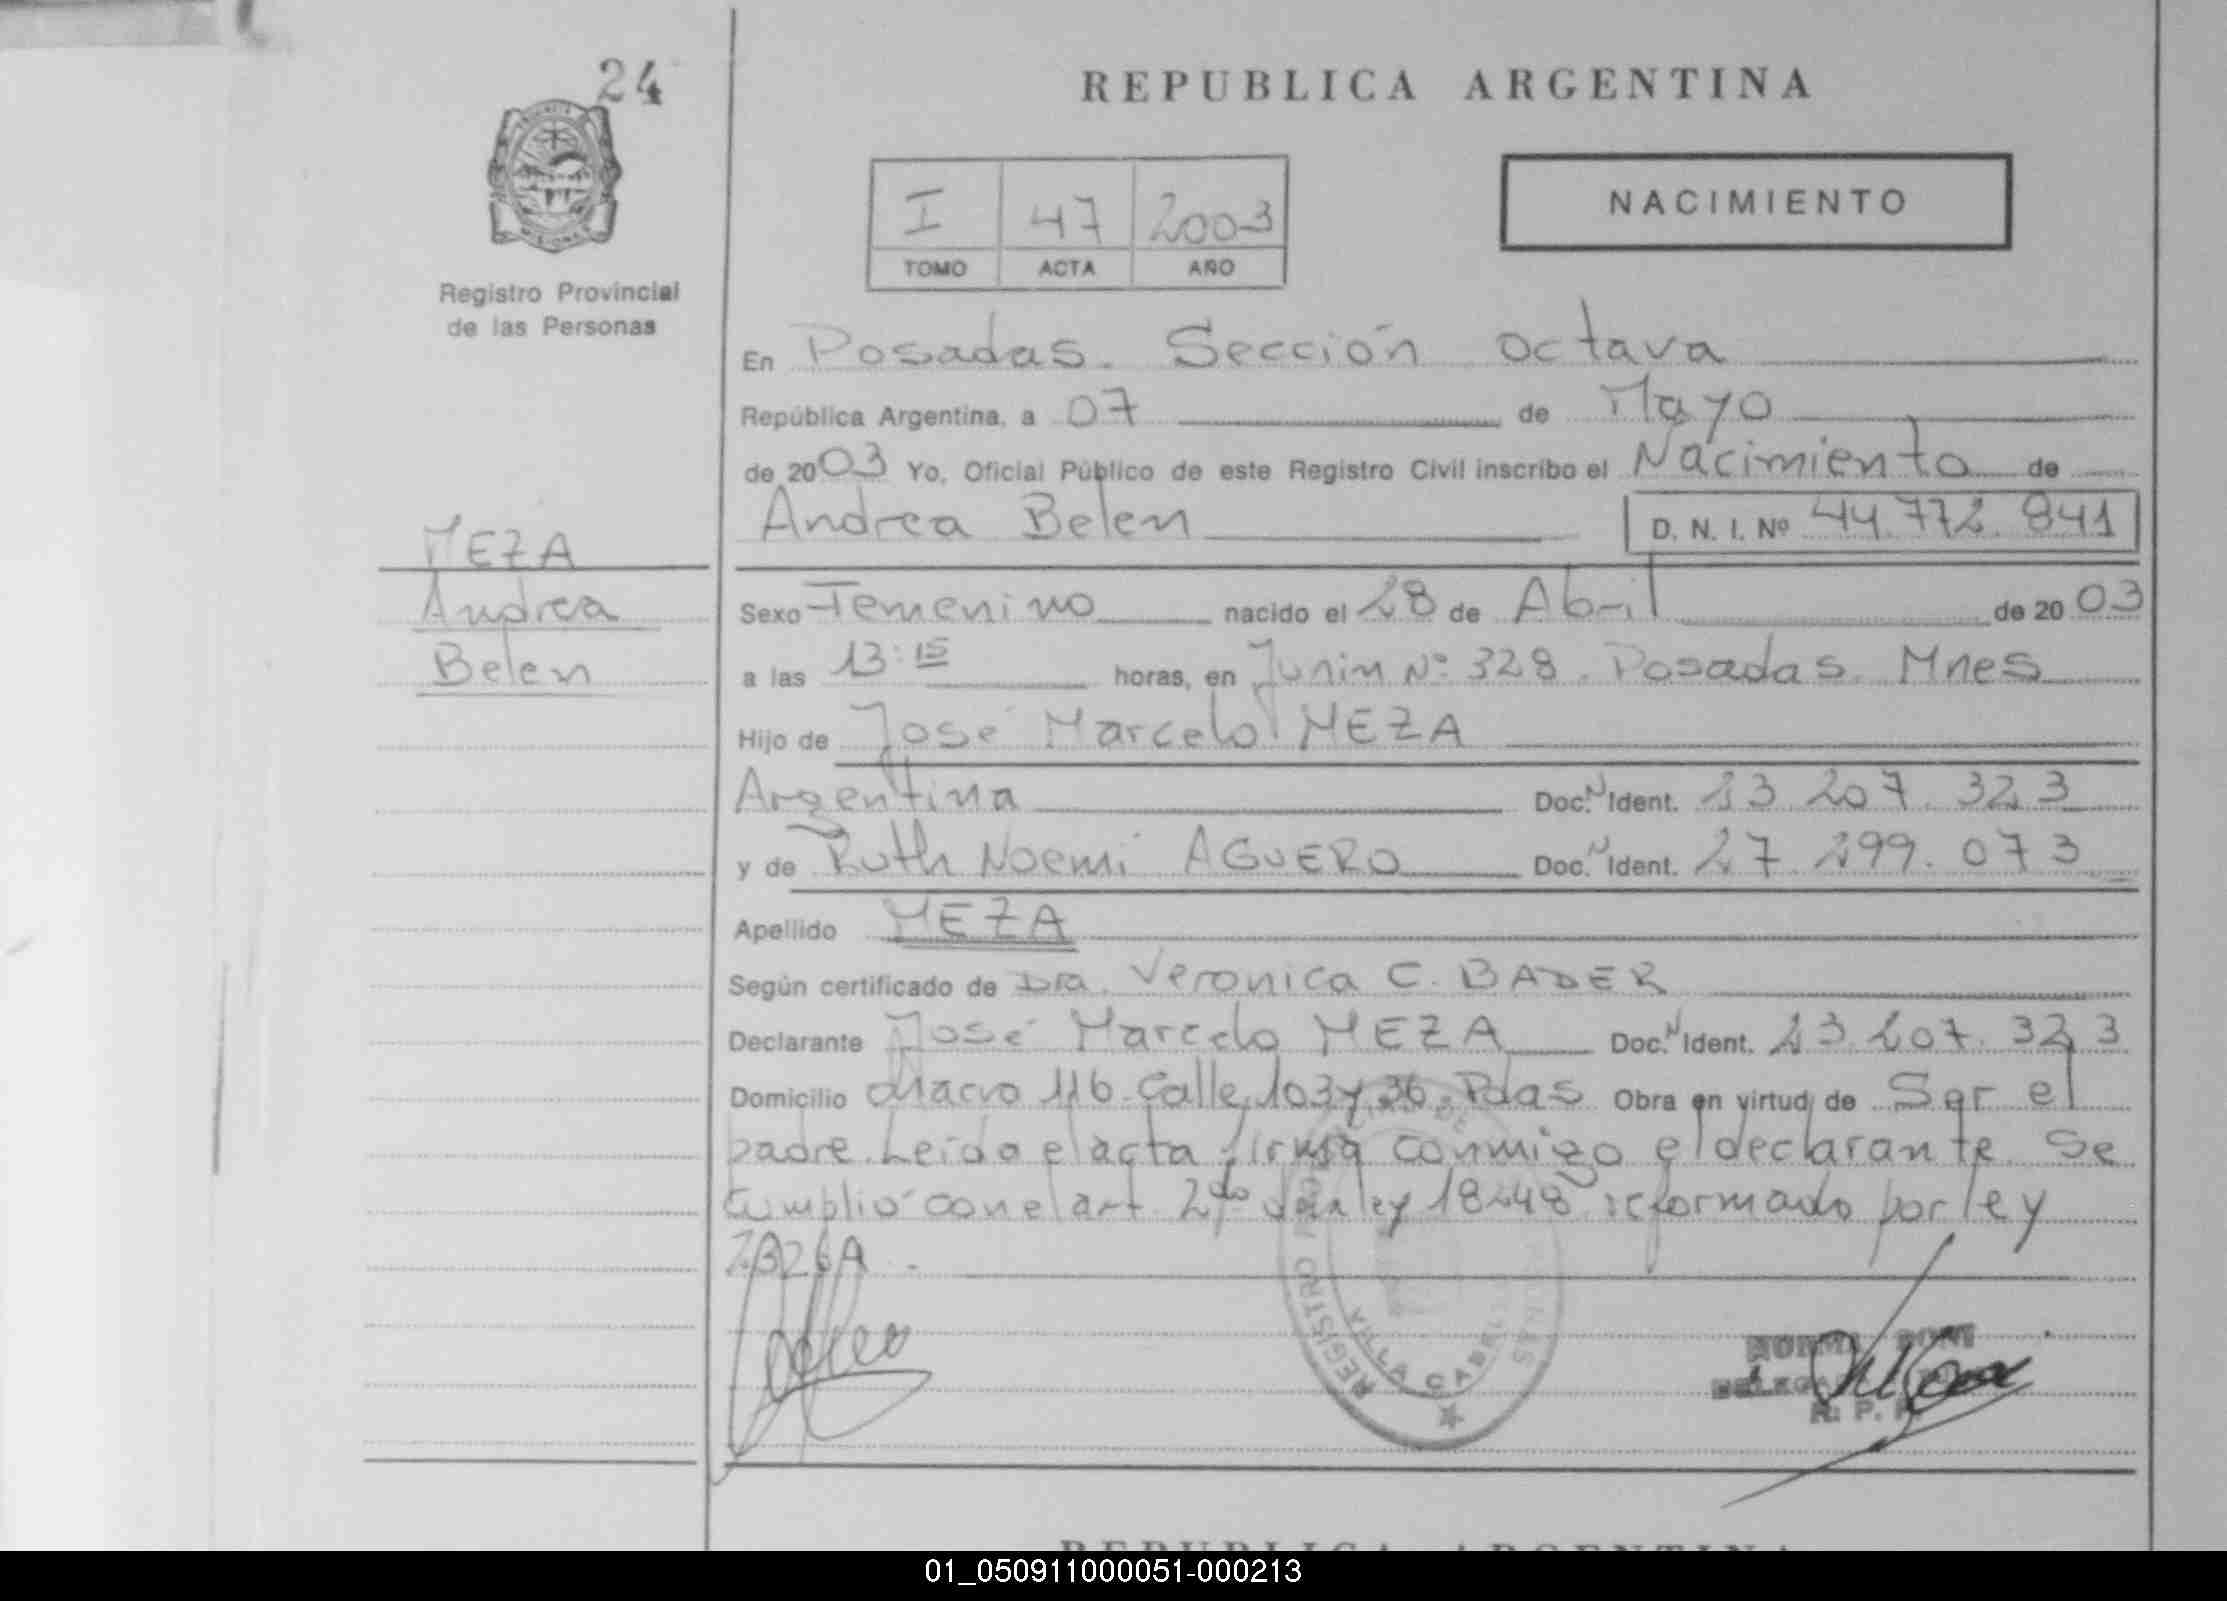 24
REPUBLICA ARGENTINA
MISIONES
Registro Provincial
de las Personas
I 47 2003
TOMO ACTA AÑO
NACIMIENTO
En Posadas. Sección octava
República Argentina, a 07 de Mayo
de 2003 Yo, Oficial Público de este Registro Civil inscribo el Nacimiento de
Andrea Belen D. N. I. Nº 44.772.841
MEZA
Andrea
Belen
Sexo Femenino nacido el 28 de Abril de 2003
a las 13:15 horas, en Junin Nº 328. Posadas. Mnes
Hijo de José Marcelo MEZA
Argentina Doc. N Ident. 23 207. 323
y de Ruth Noemi AGUERO Doc. N Ident. 27 299. 073
Apellido MEZA
Según certificado de Dra. Veronica C. BADER
Declarante José Marcelo MEZA Doc. N Ident. 23.207.323
Domicilio chacra 116. Calle 103 y 36. Pdas Obra en virtud de Ser el
padre. Leida el acta firma conmigo el declarante. Se
cumplió con el art. 2do de la ley 18248 reformado por ley
REGISTRO
VILLA CABELLO
NORMA
DELEGADA
R. P. P.
REPUBLICA ARGENTINA
01_050911000051-000213